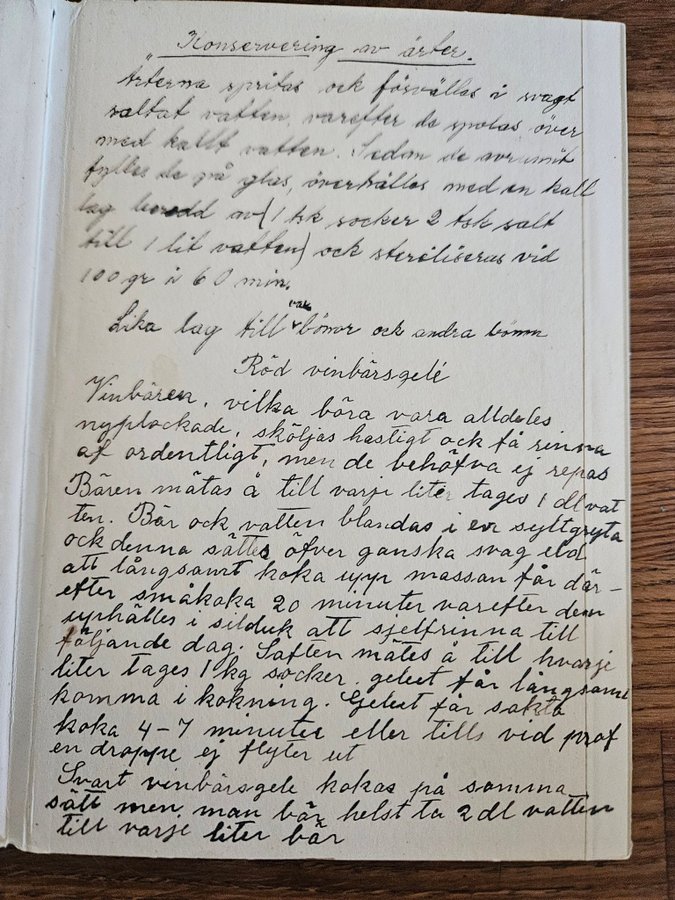 Konservering av ärter.
Ärterna spritas ock förvälles i svagt
saltat vatten, varefter de spolas över
med kallt vatten. Sedan de avrunnit
fylles de på glas, överhälles med en kall
lag beredd av (1 tsk socker 2 tsk salt
till 1 lit vatten) ock steriliseras vid
100 gr i 60 min.
Lika lag till vax bönor ock andra bönor
Röd vinbärsgelé
Vinbären, vilka böra vara alldeles
nyplockade, sköljas hastigt ock få rinna
af ordentligt, men de behöfva ej repas
Bären mätas å till varje liter tages 1 dl vat
ten. Bär ock vatten blandas i en syltgryta
ock denna sättes öfver ganska svag eld
att långsamt koka upp massan får där-
efter småkoka 20 minuter varefter den
upphälles i silduk att sjelfrinna till
följande dag. Saften mätes å till hvarje
liter tages 1 kg socker. geleet får långsamt
komma i kokning. Geleet får sakta
koka 4-7 minuter eller tills vid prof
en droppe ej flyter ut
Svart vinbärsgele kokas på samma
sätt men man bör helst ta 2 dl vatten
till varje liter bär